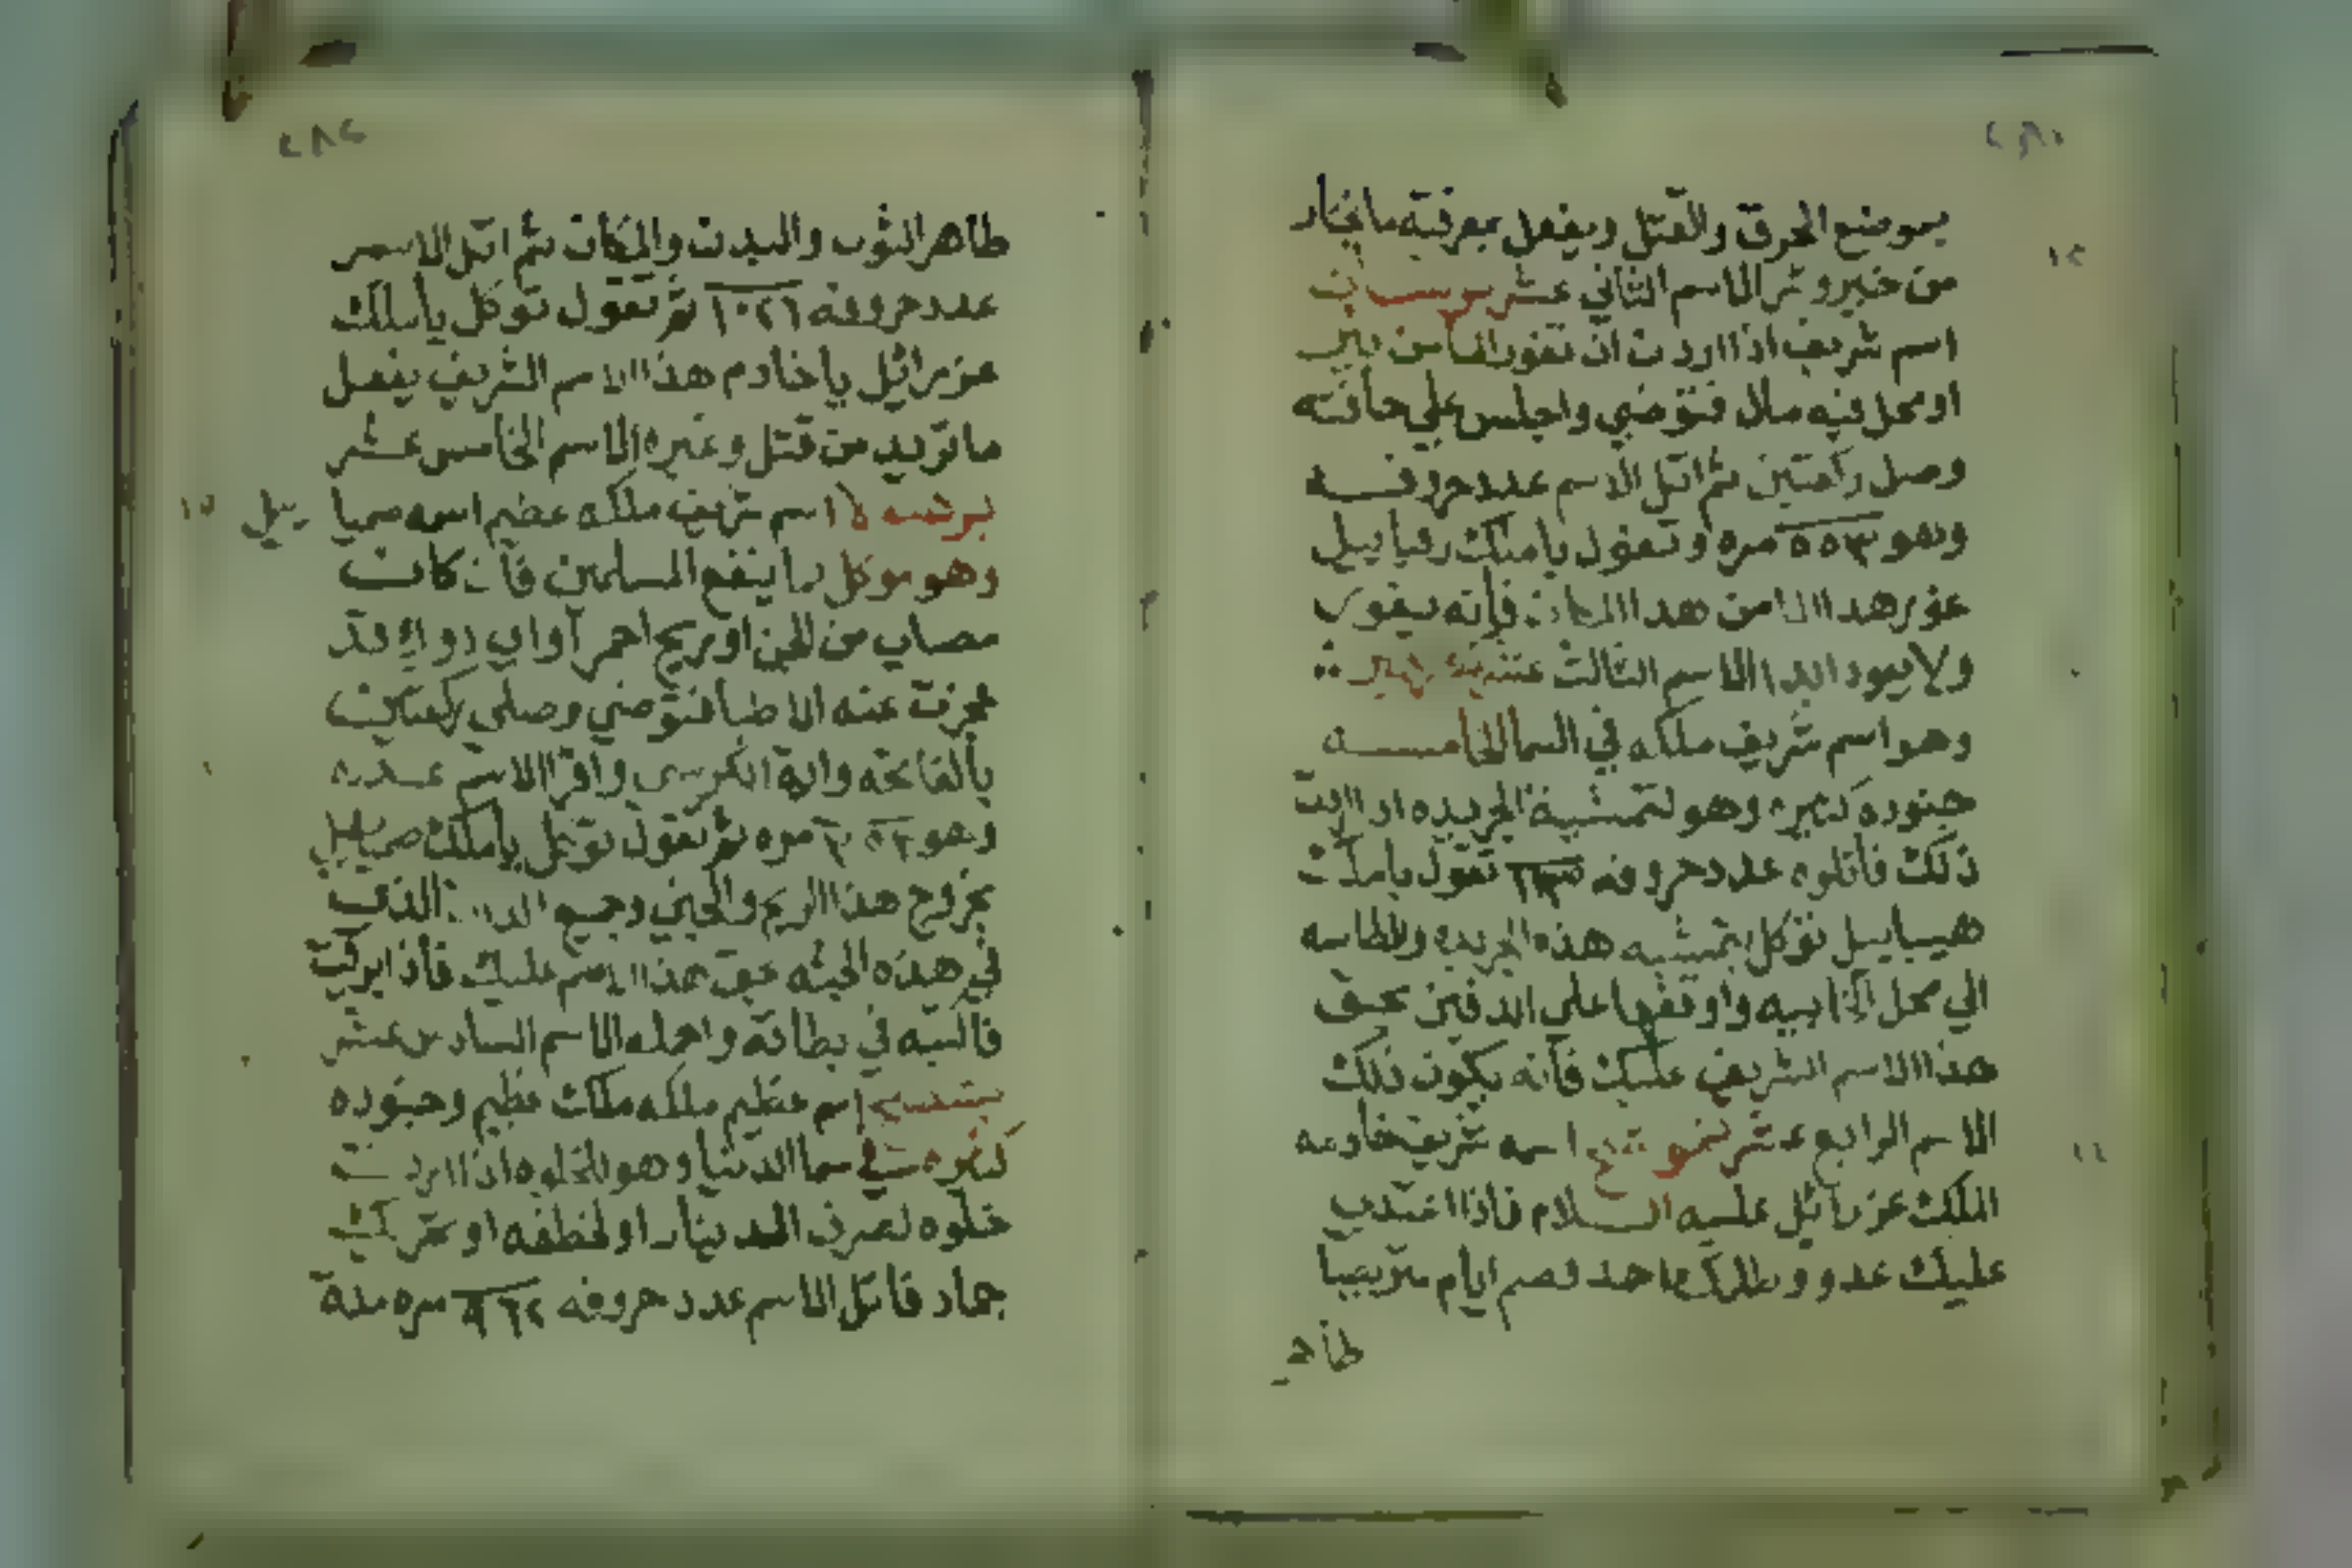 بموضع الحرق والقتل ويفعل بمعرفته ماتختار
من خير وشر الاسم الثاني عشر
اسم شريف اذا اردت ان تغور
او محل فيه مال فتوضي واجلس علي حافته
وصل ركعتين ثم اتل الاسم عدد حروفه
وهو ٥٥٣ مره وتقول ياملك رقياييل
غور هدا الما من هدا المكان فانه يغور
ولا يعود ابدا الاسم الثالث عشر
وهو اسم شريف ملكه في السما الخامسه
جنوده كثيره وهو لتمشية الجريده اذا اردت
ذلك فاتلوه عدد حروفه تقول ياملك
هيياييل توكل بتمشيه هذه الجريده
الي محل الخابيه واوقفها علي الدفين بحق
هذا الاسم الشريف عليك فانه يكون ذلك
الاسم الرابع عشر اسم شريف خادمه
الملك عزرائيل عليه السلام فاذا اعتدي
عليك عدو وظلمك احد فصم ايام
طاهر
طاهر الثوب والبدن والمكان ثم اتل الاسم
عدد حروفه ١٠٢٦ ثم تقول توكل ياملك
عزرائيل ياخادم هذا الاسم الشريف بفعل
ماتريد من قتل وغيره الاسم الخامس عشر
اسم شريف ملكه عظيم اسمه صميا
ييل
وهو موكل بما ينفع المسلمين فان كان
مصاب من الجن او ريح احمر او اي دواء قد
عجزت عنه الاطبا فتوضي وصلي ركعتين
بالفاتحه واية الكرسي واقرا الاسم عدده
وهو مره ثم تقول توكل ياملك صمياييل
بخروج هذا الريح والجني وجميع الذي
في هذه الجثه بحق هذا الاسم عليك فاذا
فاكتبه في بطاقه واحمله الاسم السادس عشر
اسم عظيم ملكه ملك عظيم وجنوده
كثيره في سما الدنيا وهو للخلوه اذا اردت
خلوه لصرف الدينار او لخطفه او تحريك
جماد فاتل الاسم عدد حروفه ٩٦٢ مره مدة